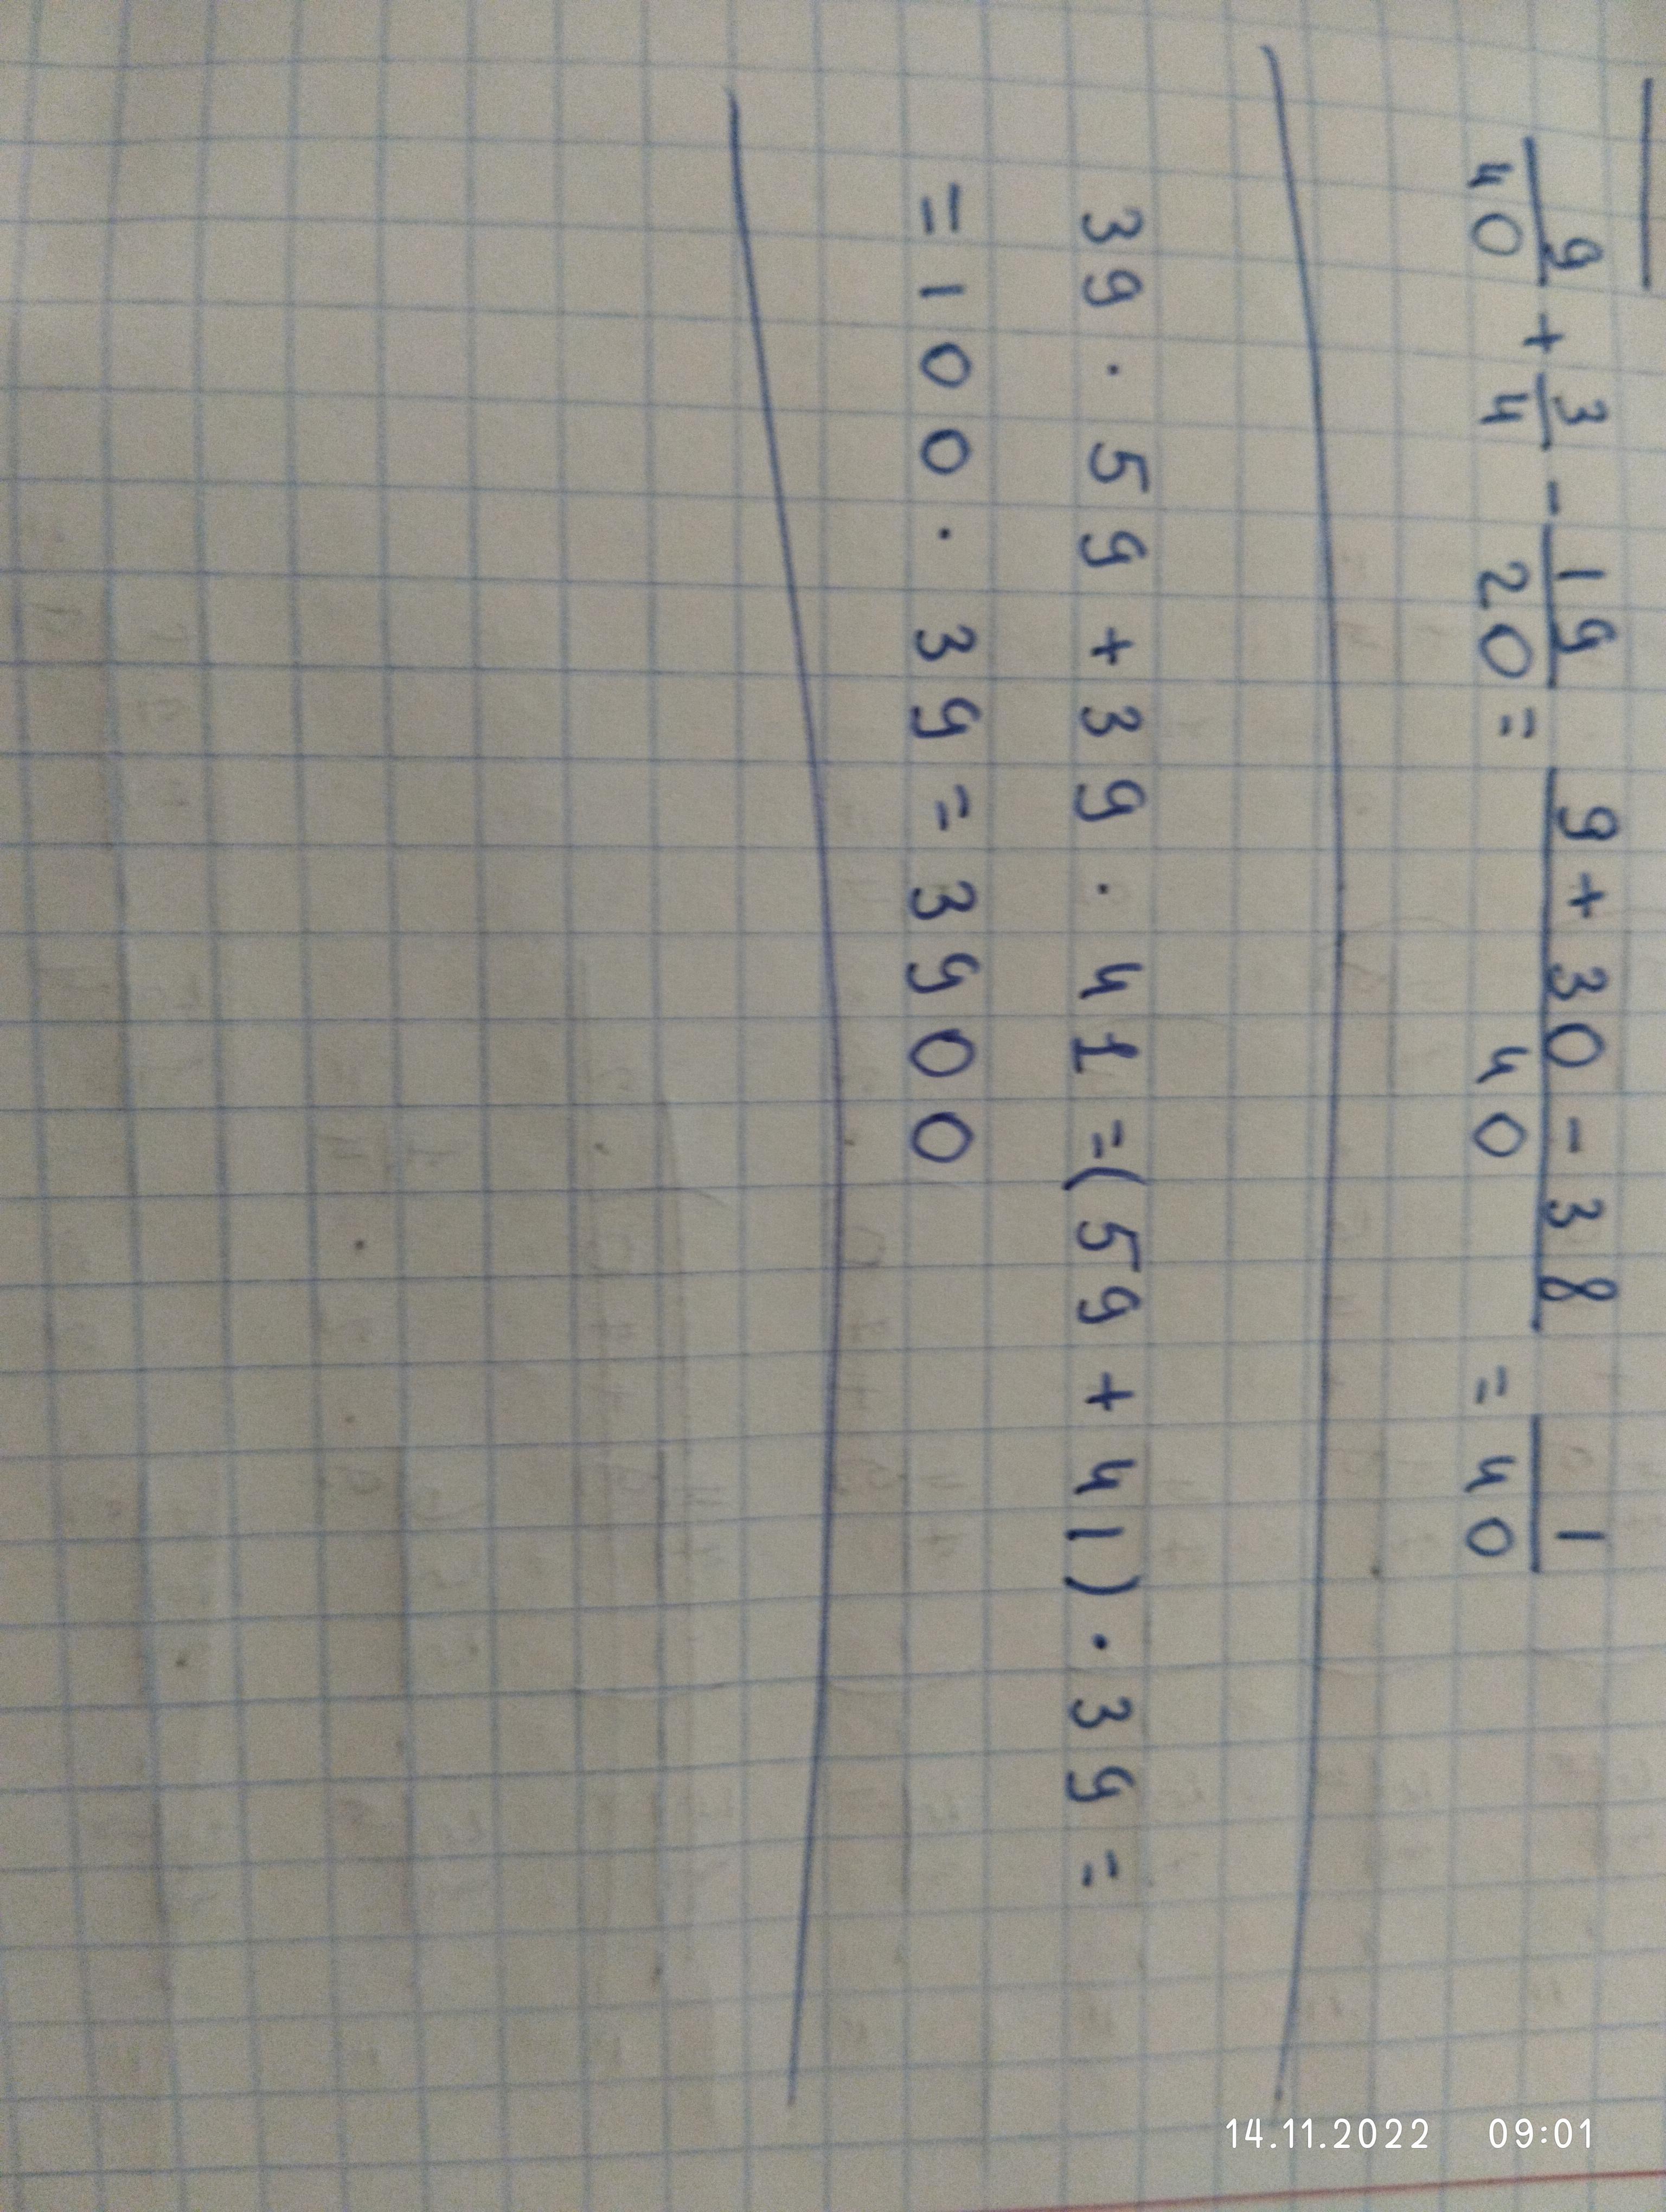 9/40 + 3/4 - 19/20 = (9+30-38)/40 = 1/40
39 · 59 + 39 · 41 = (59 + 41) · 39 =
= 100 · 39 = 3900
14.11.2022 09:01